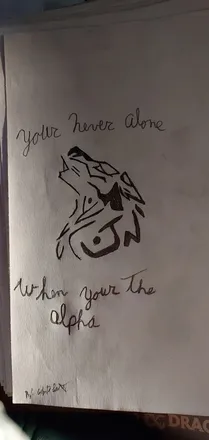 Your never alone
When your the
alpha
DRAG